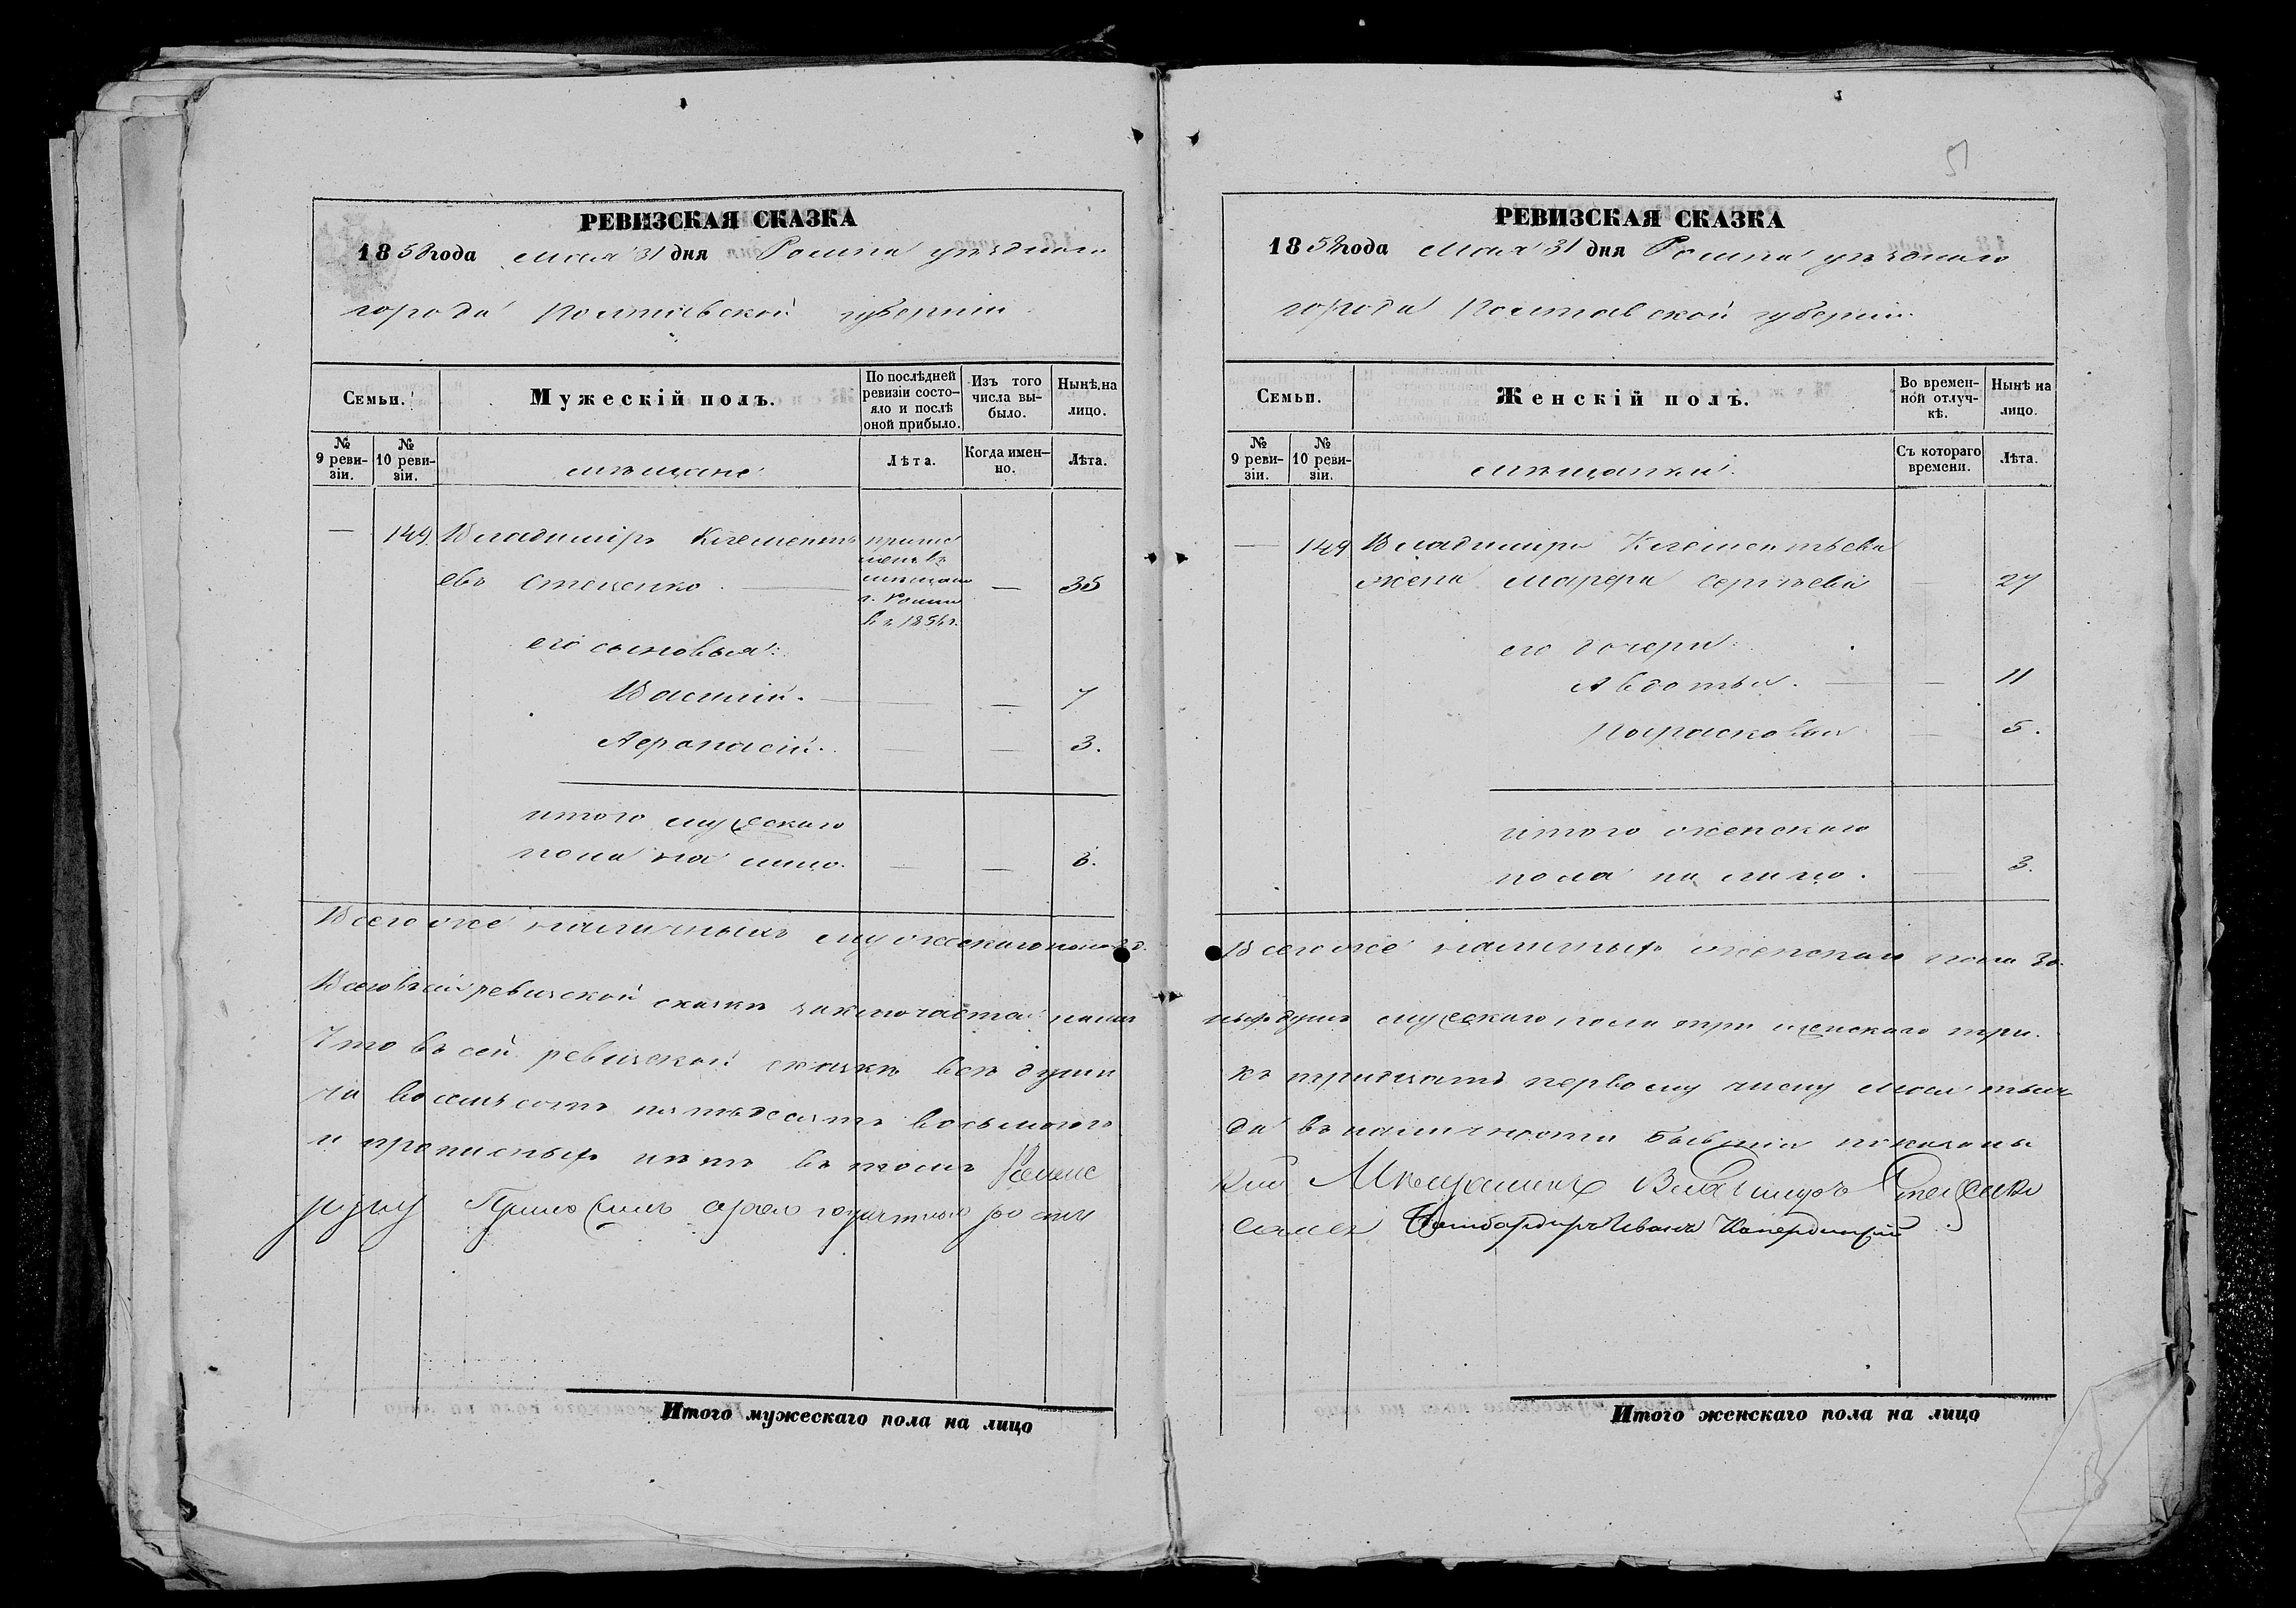 РЕВИЗСКАЯ СКАЗКА
1858 года Мая 31 дня Ромна уѣзднаго
города Полтавской губерніи
Семьи.
Мужескій полъ.
По послѣдней ревизіи состо-
яло и послѣ
оной прибыло.
Изъ того
числа вы-
было.
Нынѣ на
лицо.
№
9 реви-
зіи.
№
10 реви-
зіи.
мѣщане
Лѣта.
Когда имен-
но.
Лѣта.
— 149. Владиміръ Климентъ
евъ Стеценко — 35
мѣщане
г. Ромна
его сыновья:
Василій. — — 7
Афанасій. — — 3.
итого мужескаго
пола на лицо. — — 3.
Всего же наличныхъ мужескаго пола
Всего въ сей ревизской сказкѣ заключается
Что въ сей ревизской сказкѣ всѣ души
восемьсотъ пятьдесятъ восьмого
и прописныхъ нѣтъ въ томъ
Итого мужескаго пола на лицо
51
РЕВИЗСКАЯ СКАЗКА
1858 года Мая 31 дня Ромна уѣзднаго
города Полтавской губерніи.
Семьи.
Женскій полъ.
Во времен-
ной отлуч-
кѣ.
Нынѣ на
лицо.
№
9 реви-
зіи.
№
10 реви-
зіи.
мѣщанки.
Съ котораго
времени.
Лѣта.
— 149 Владиміра Климентьева
жена Марфа Сергѣева — 27
его дочери:
Авдотья. — — 11
Парасковья — 5.
итого женскаго
пола на лицо. — 3.
Всего же наличныхъ женскаго пола 3
душъ мужескаго пола три женскаго три.
къ тридцать первому числу Мая тыся
да въ наличности бывшія показаны
Мещанинъ Владимиръ Стеценко
Бомбардиръ Иванъ
Итого женскаго пола на лицо